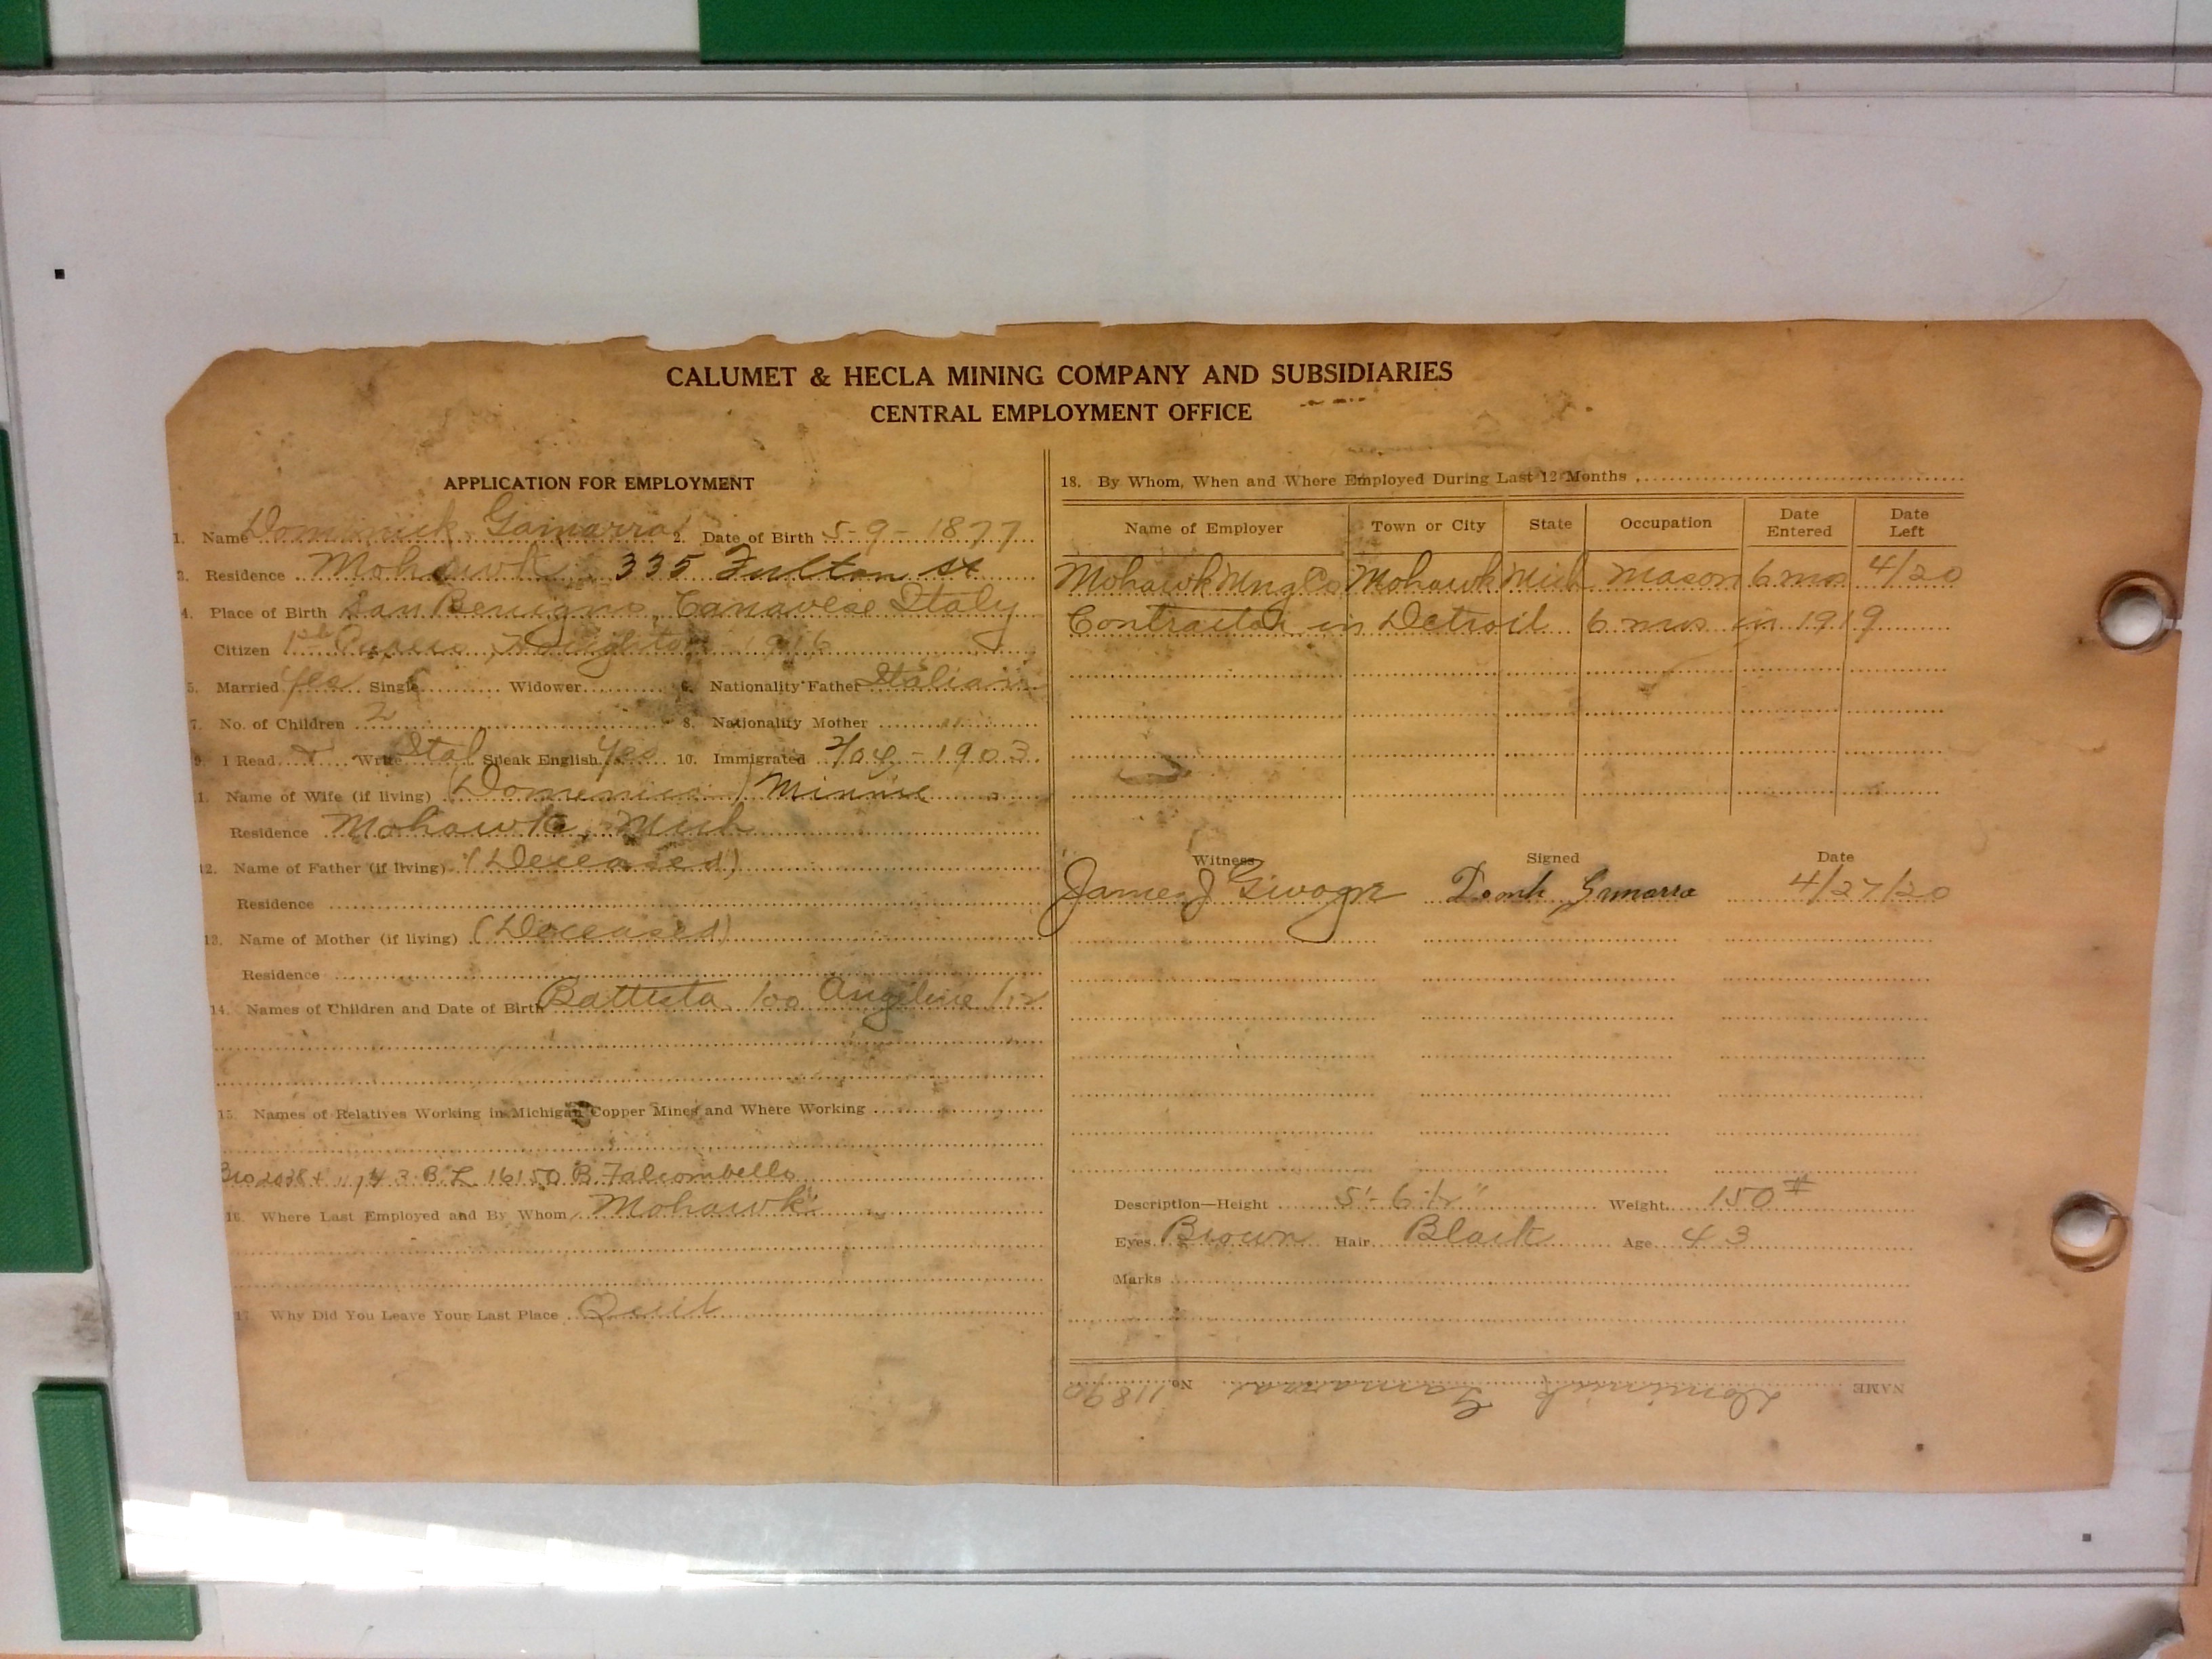 CALUMET & HECLA MINING COMPANY AND SUBSIDIARIES
CENTRAL EMPLOYMENT OFFICE
APPLICATION FOR EMPLOYMENT
1. Name Dominick Gamarra 2. Date of Birth 5-9-1877
3. Residence Mohawk 335 Fulton st
4. Place of Birth San Benigno, Canavese Italy
Citizen 1st Papers, Houghton 1916
5. Married yes Single Widower 6. Nationality Father Italian
7. No. of Children 2 8. Nationality Mother "
9. I Read Write Ital Speak English yes 10. Immigrated 1903
11. Name of Wife (if living) Domenica / Minnie
Residence Mohawk, Mich
12. Name of Father (if living) (Deceased)
Residence
13. Name of Mother (if living) (Deceased)
Residence
14. Names of Children and Date of Birth Battista /00 Angeline /12
15. Names of Relatives Working in Michigan Copper Mines and Where Working
B.L. 16150 B. Falcombello
16. Where Last Employed and By Whom Mohawk
17. Why Did You Leave Your Last Place Quit
18. By Whom, When and Where Employed During Last 12 Months
Name of Employer Town or City State Occupation Date Entered Date Left
Mohawk Mng Co Mohawk Mich Mason 6 mos 4/20
Contractor in Detroit 6 mos in 1919
Witness Signed Date
James J Gamarra 4/27/20
Description—Height 5'-6 1/2" Weight 150#
Eyes Brown Hair Black Age 43
Marks
NAME Dominick Gamarra No. 11890